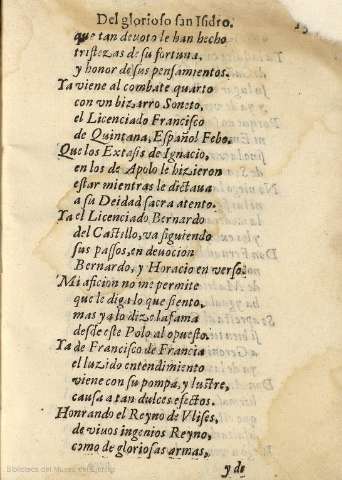 Del glorioso san Isidro.
que tan deuoto le han hecho
tristezas de su fortuna,
y honor de sus pensamientos.
Ya viene al combate quarto
con vn bizarro Soneto,
el Licenciado Francisco
de Quintana, Español Febo.
Que los Extasis de Ignacio,
en los de Apolo le hizieron
estar mientras le dictaua
a su Deidad sacra atento.
Ya el Licenciado Bernardo
del Castillo, va siguiendo
sus passos, en deuocion
Bernardo, y Horacio en verso.
Mi aficion no me permite
que le diga lo que siento,
mas ya lo dize la fama
desde este Polo al opuesto.
Ya de Francisco de Francia
el luzido entendimiento
viene con su pompa, y lustre,
causa a tan dulces efectos.
Honrando el Reyno de Vlises,
de viuos ingenios Reyno,
como de gloriosas armas,
y de
Biblioteca del Museo del Ejército